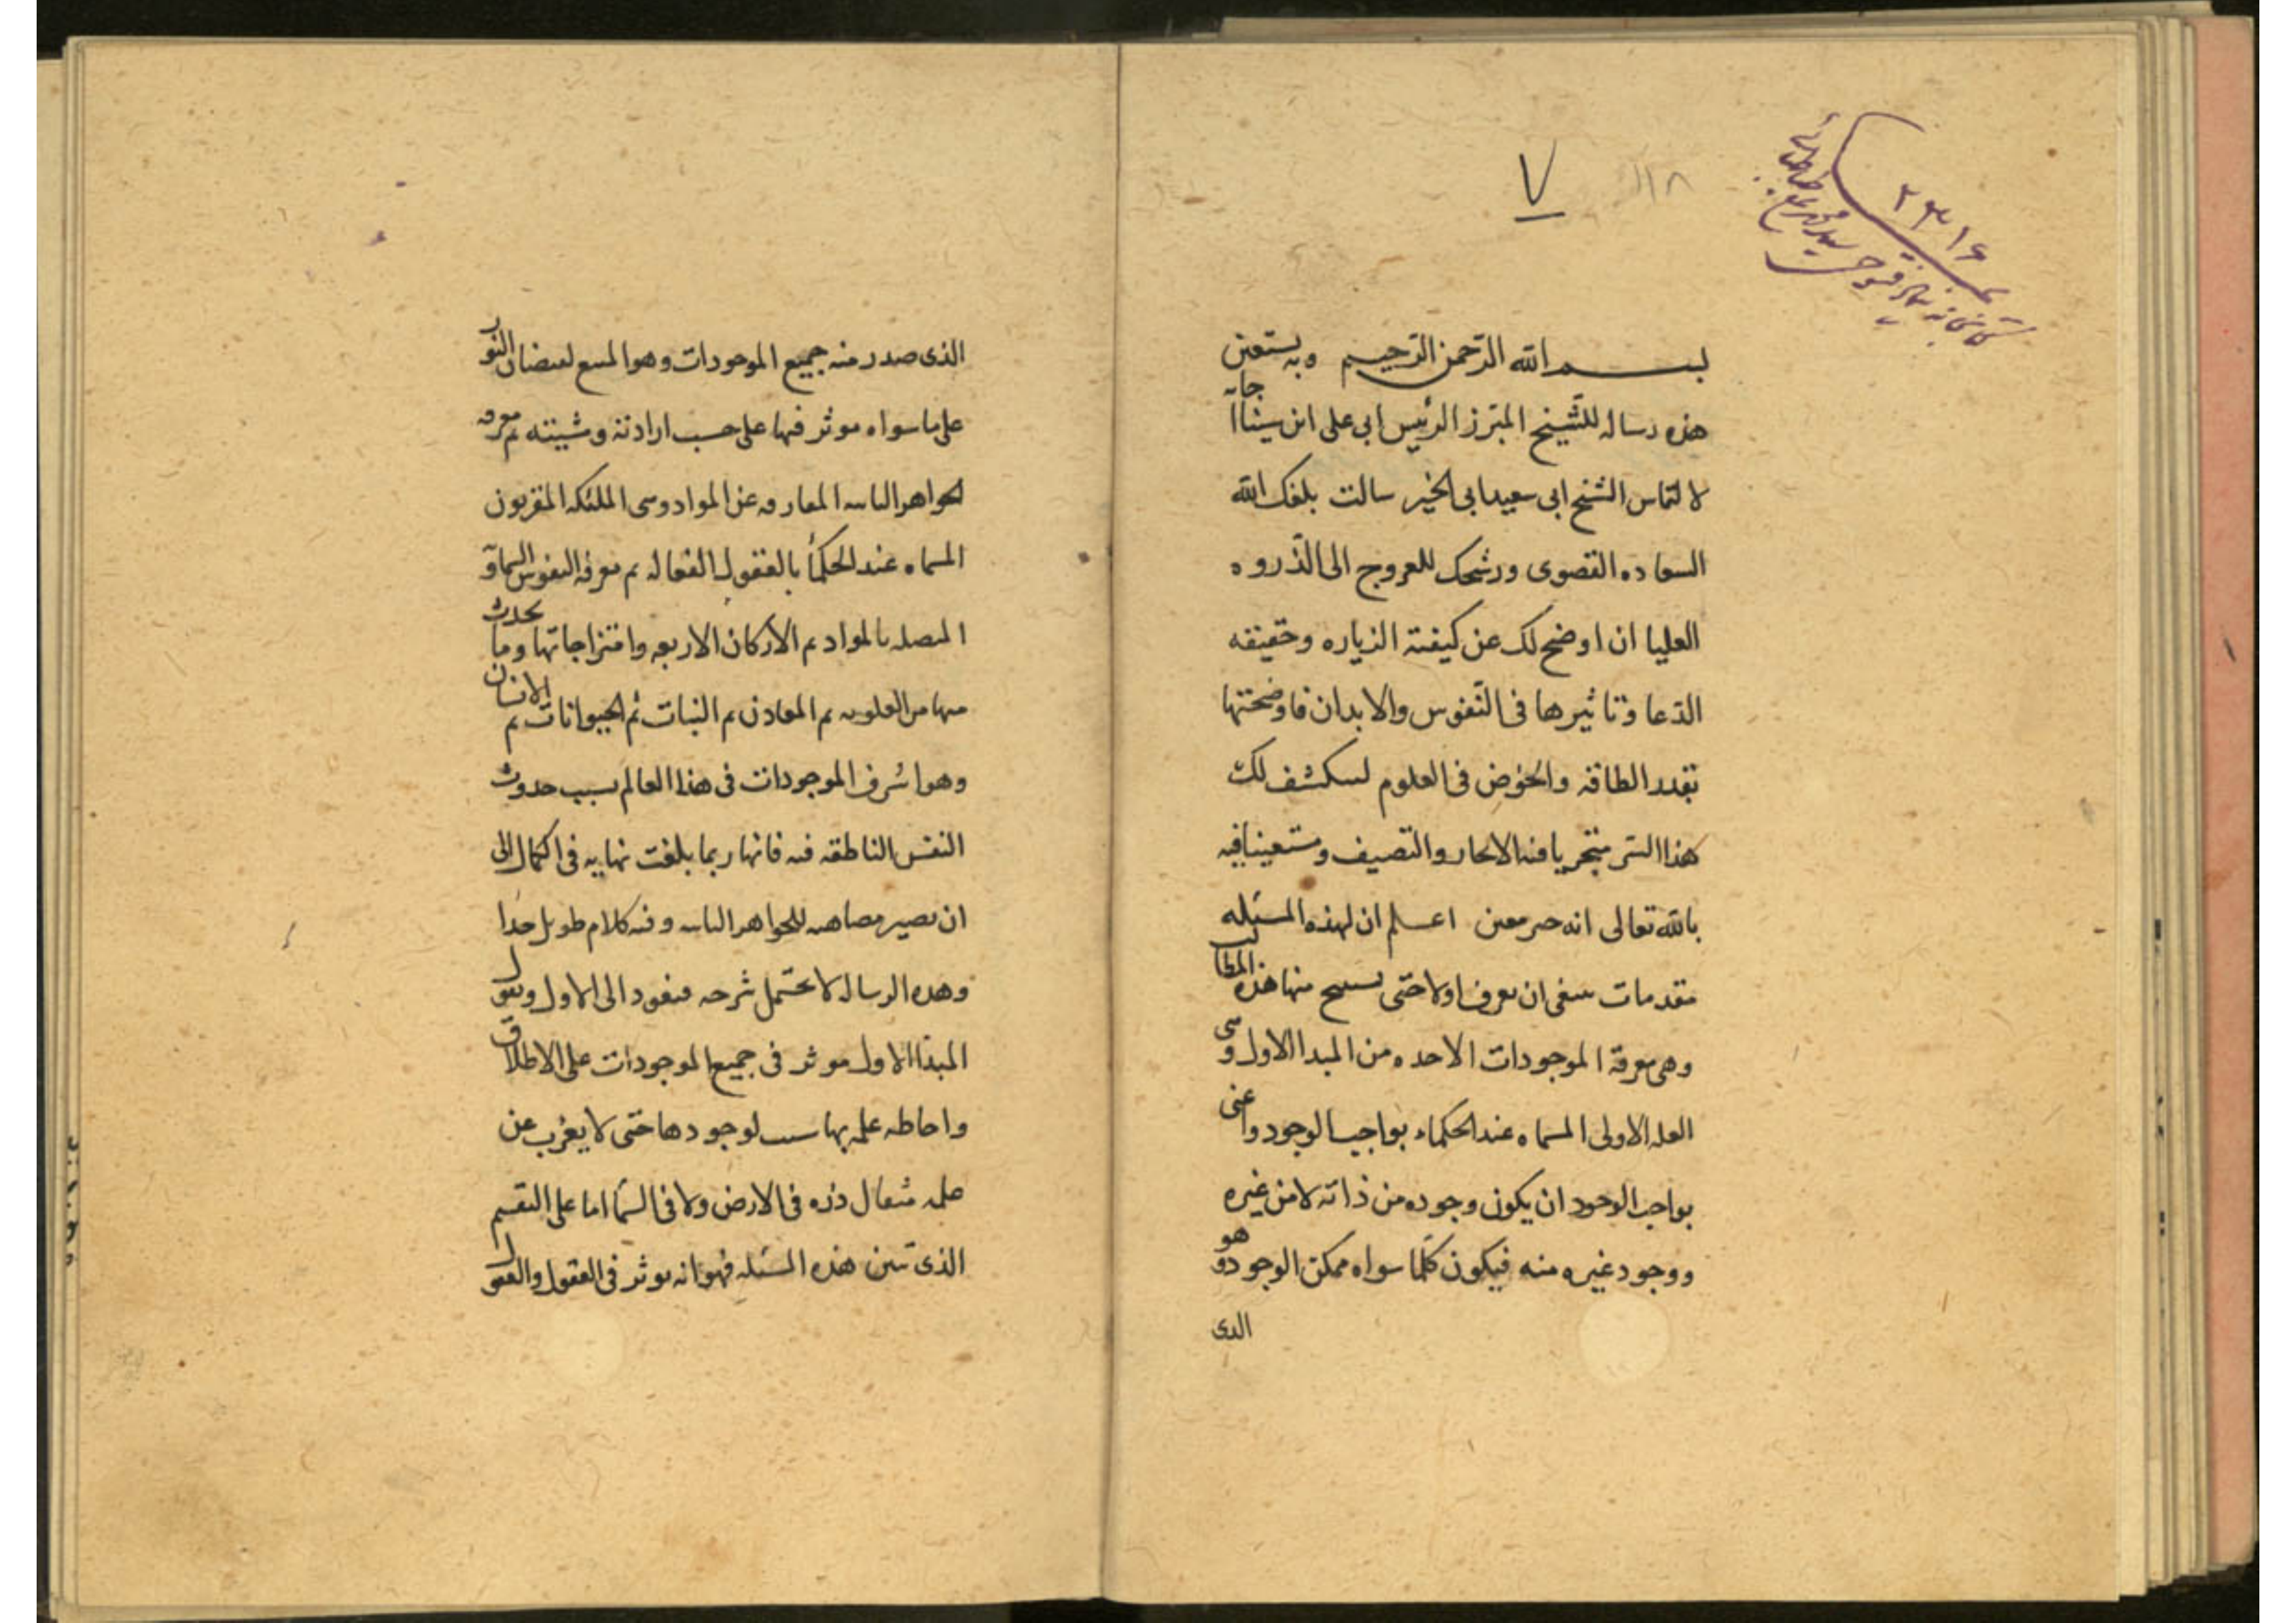 ٧
١١٨
٢٣١٦
بسم الله الرحمن الرحيم وبه نستعين
هذه رساله للشيخ المبرز الرئيس ابى على ابن سينا اجابه
لالتماس الشيخ ابى سعيد ابى الخير سالت بلغك الله
السعاده القصوى ورشحك للعروج الى الذروه
العليا ان اوضح لك عن كيفية الزياره وحقيقه
الدعا وتاثيرها فى النفوس والابدان فاوضحتها
بقدر الطاقه والخوض فى العلوم لينكشف لك
هذا السر متحريا فيه الايجاز والتصيف ومستعينا فيه
بالله تعالى انه خير معين اعلم ان لهذه المسئله
مقدمات ينبغى ان تعرف اولا حتى يستنتج منها هذه المطالب
وهى معرفة الموجودات الاخذه من المبدا الاول وهى
العله الاولى المسماه عند الحكماء بواجب الوجود واعنى
بواجب الوجود ان يكون وجوده من ذاته لا من غيره
ووجود غيره منه فيكون كلما سواه ممكن الوجود وهو
الذى
الذى صدر منه جميع الموجودات وهو المنبع لفيضان النور
على ما سواه موثر فيها على حسب ارادته ومشيته ثم معرفه
الجواهر الثابته المفارقه عن المواد وهى الملئكه المقربون
المسماه عند الحكماء بالعقول الفعاله ثم معرفة النفوس السماوية
المتصله بالمواد ثم الاركان الاربعه وامتزاجاتها وما يحدث
منها من العلويه ثم المعادن ثم النبات ثم الحيوانات ثم الانسان
وهو اشرف الموجودات فى هذا العالم بسبب حدوث
النفس الناطقه فيه فانها ربما بلغت نهايه فى الكمال الى
ان تصير مضاهيه للجواهر الثابته وفيه كلام طويل جدا
وهذه الرساله لا تحتمل شرحه فنعود الى الاول ونقول
المبدا الاول موثر فى جميع الموجودات على الاطلاق
واحاطه علمه بها سبب لوجودها حتى لا يعزب عن
علمه مثقال ذره فى الارض ولا فى السما اما على التقسيم
الذى تبين هذه المسئله فهو انه يوثر فى العقول والعقول